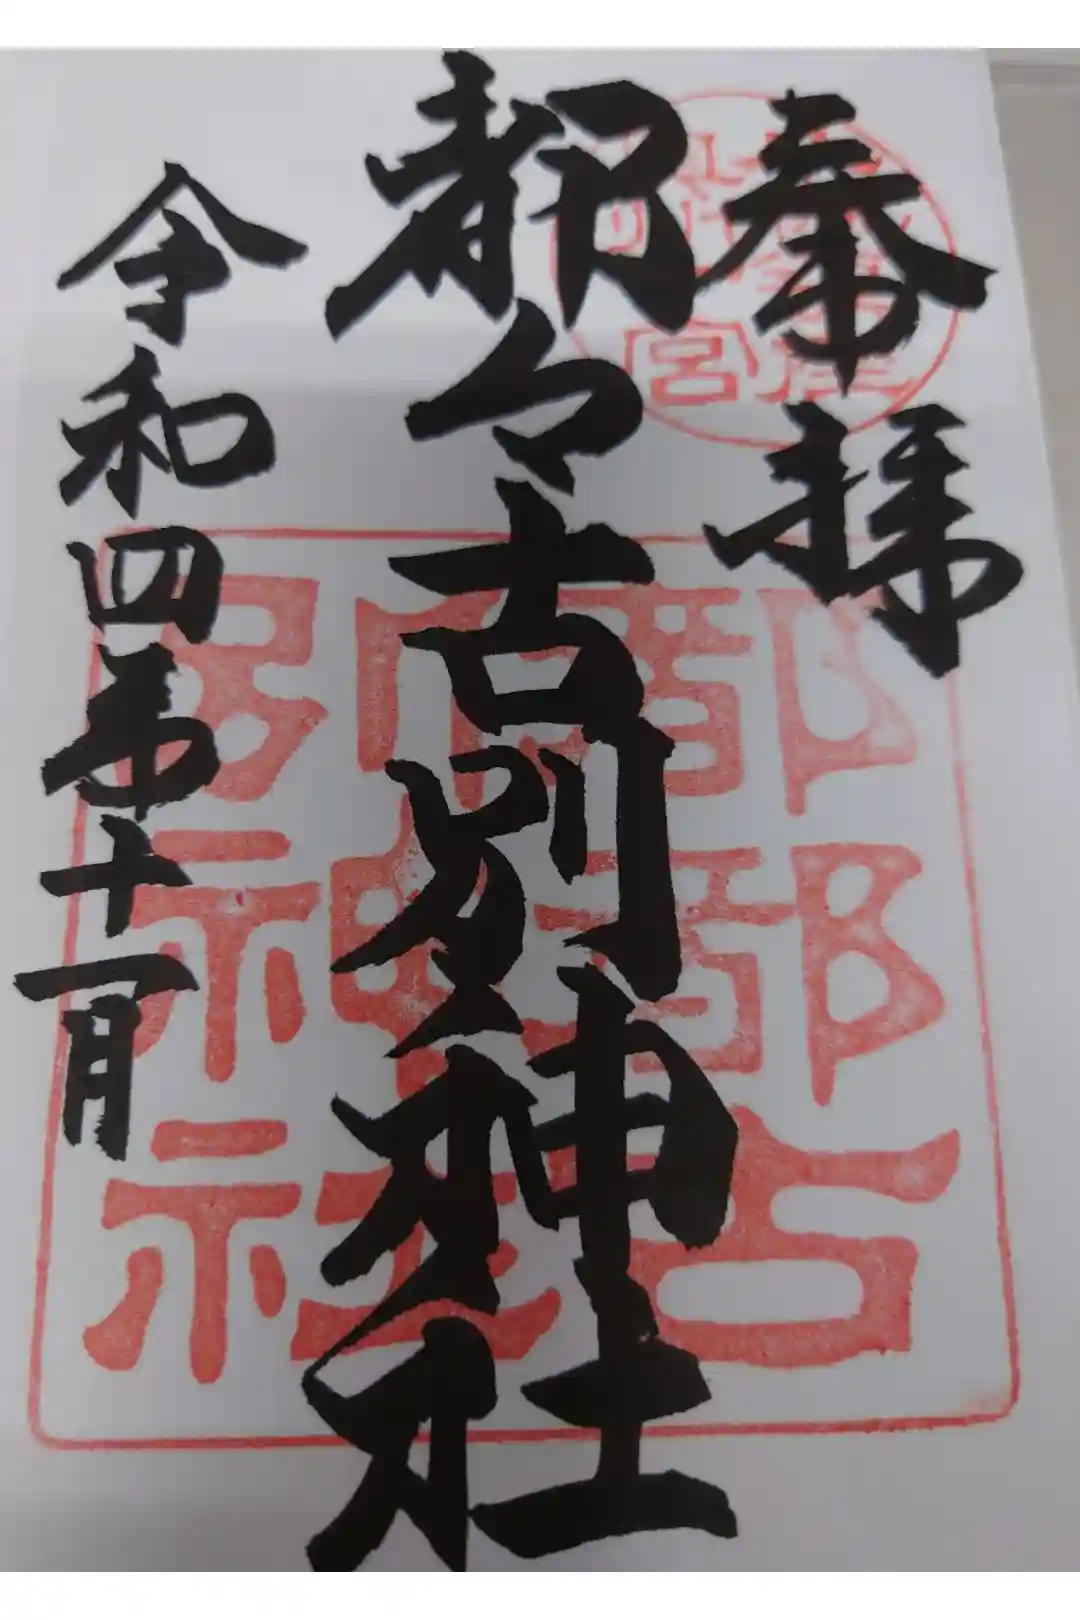 奉拜
都々古別神社
令和四年十一月
都都古別神社